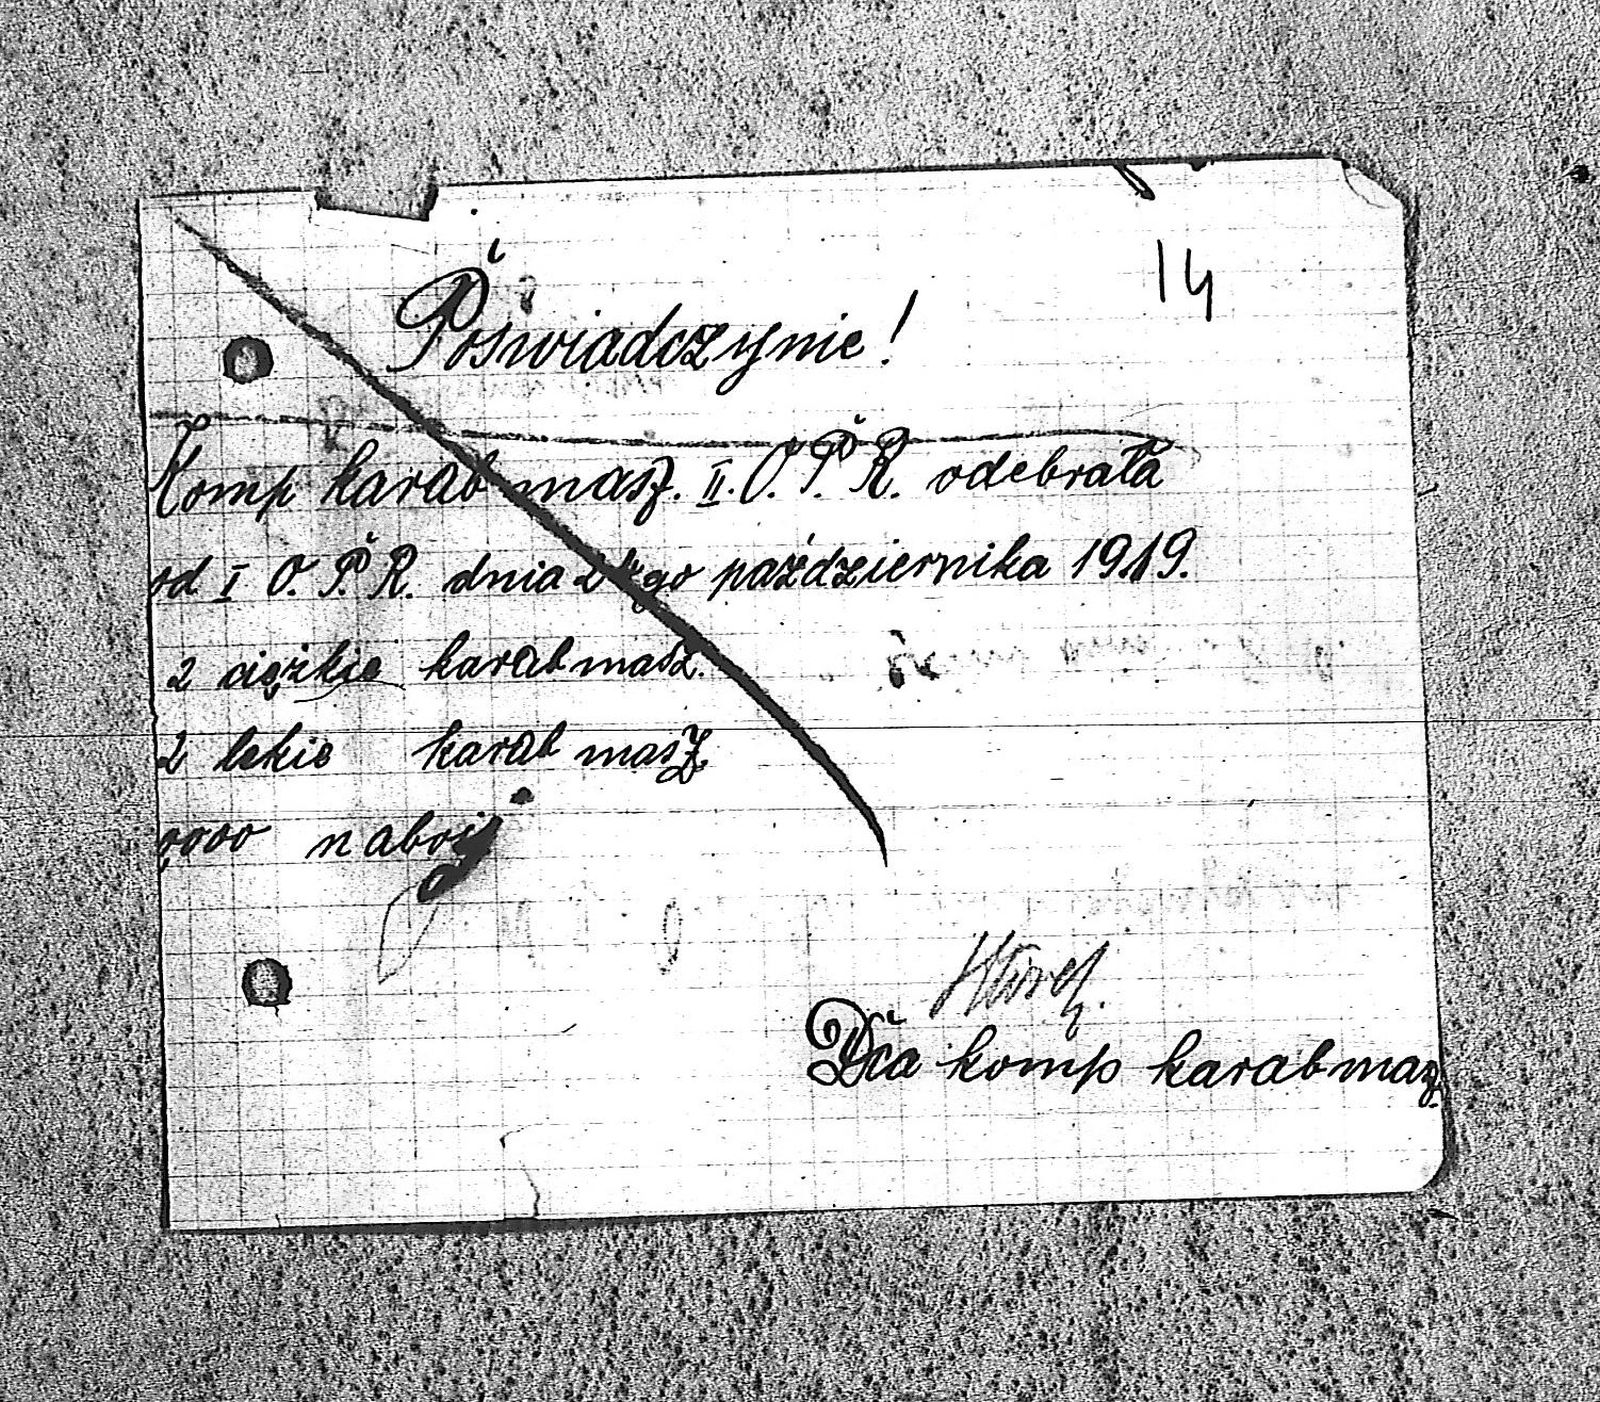 14
Poświadczynie!
Komp karab masz. II. O. P. R. odebrała
od I O. P. R. dnia go października 1919.
2 ciężkie karab masz.
2 lekie karab masz
naboji
Dca komp karab masz.